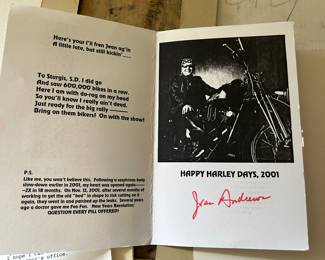 Here's your l'il fren Jean ag'in
A little late, but still kickin'----
To Sturgis, S.D. I did go
And saw 600,000 bikes in a row.
Here I am with do-rag on my head
So you'll know I really ain't dead.
Just ready for the big rally ----
Bring on them bikers! On with the show!
P.S.
Like me, you won't believe this. Following a suspicious body
slow-down earlier in 2001, my heart was opened again----
-2X in 18 months. On Nov. 12, 2001, after several months
of working to get the old "bod" in shape to risk cutting on it
again, they went in and patched up the leaks. Several years
ago a doctor gave me Fen Fen. New Years Resolution:
QUESTION EVERY PILL OFFERED!
HAPPY HARLEY DAYS, 2001
Jean Anderson
I hope I
's office.